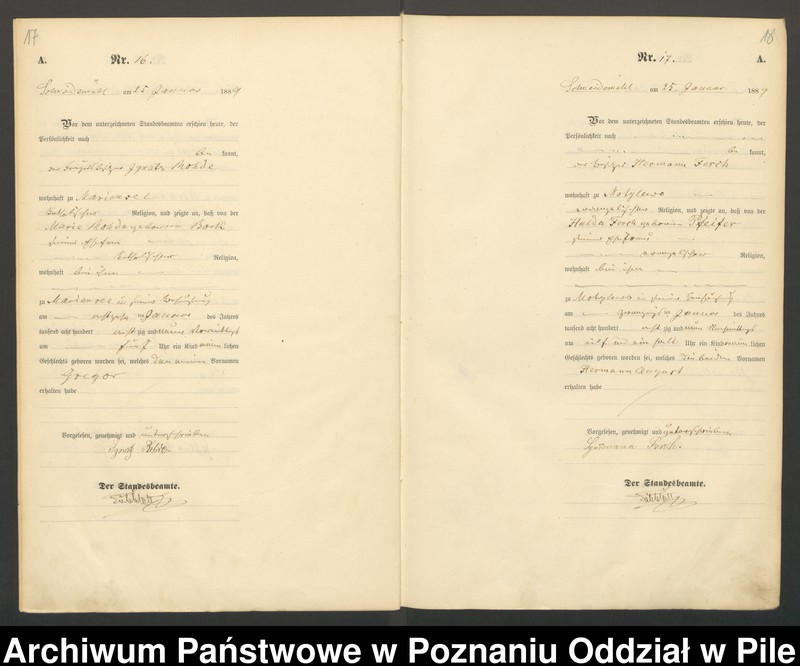 17
A. Nr. 16.
Schneidemühl am 25 Januar 1889
Vor dem unterzeichneten Standesbeamten erschien heute, der
Persönlichkeit nach
be kannt,
der Ignatz Rohde
wohnhaft zu Mariensee
katholischer Religion, und zeigte an, daß von der
Marie Rohde geborenen Bork
seiner Ehefrau
katholischer Religion,
wohnhaft bei ihm
zu Mariensee in seiner Behausung
am Januar des Jahres
tausend acht hundert acht zig und neun Vormittags
um fünf Uhr ein Kind männlichen
Geschlechts geboren worden sei, welches den einen Vornamen
Gregor
erhalten habe
Vorgelesen, genehmigt und unterschrieben
Ignatz
Der Standesbeamte.
18
Nr. 17. A.
Schneidemühl am 25. Januar 1889
Vor dem unterzeichneten Standesbeamten erschien heute, der
Persönlichkeit nach
be kannt,
der Besitzer Hermann Ferch
wohnhaft zu Motylewo
evangelischer Religion, und zeigte an, daß von der
Hulda Ferch geborenen Pfeifer
seiner Ehefrau
evangelischer Religion,
wohnhaft bei ihm
zu Motylewo in seiner Behausung
am zwanzigsten Januar des Jahres
tausend acht hundert acht zig und neun Vormittags
um elf und ein halb Uhr ein Kind männlichen
Geschlechts geboren worden sei, welches die beiden Vornamen
Hermann August
erhalten habe
Vorgelesen, genehmigt und unterschrieben
Hermann Ferch.
Der Standesbeamte.
Archiwum Państwowe w Poznaniu Oddział w Pile